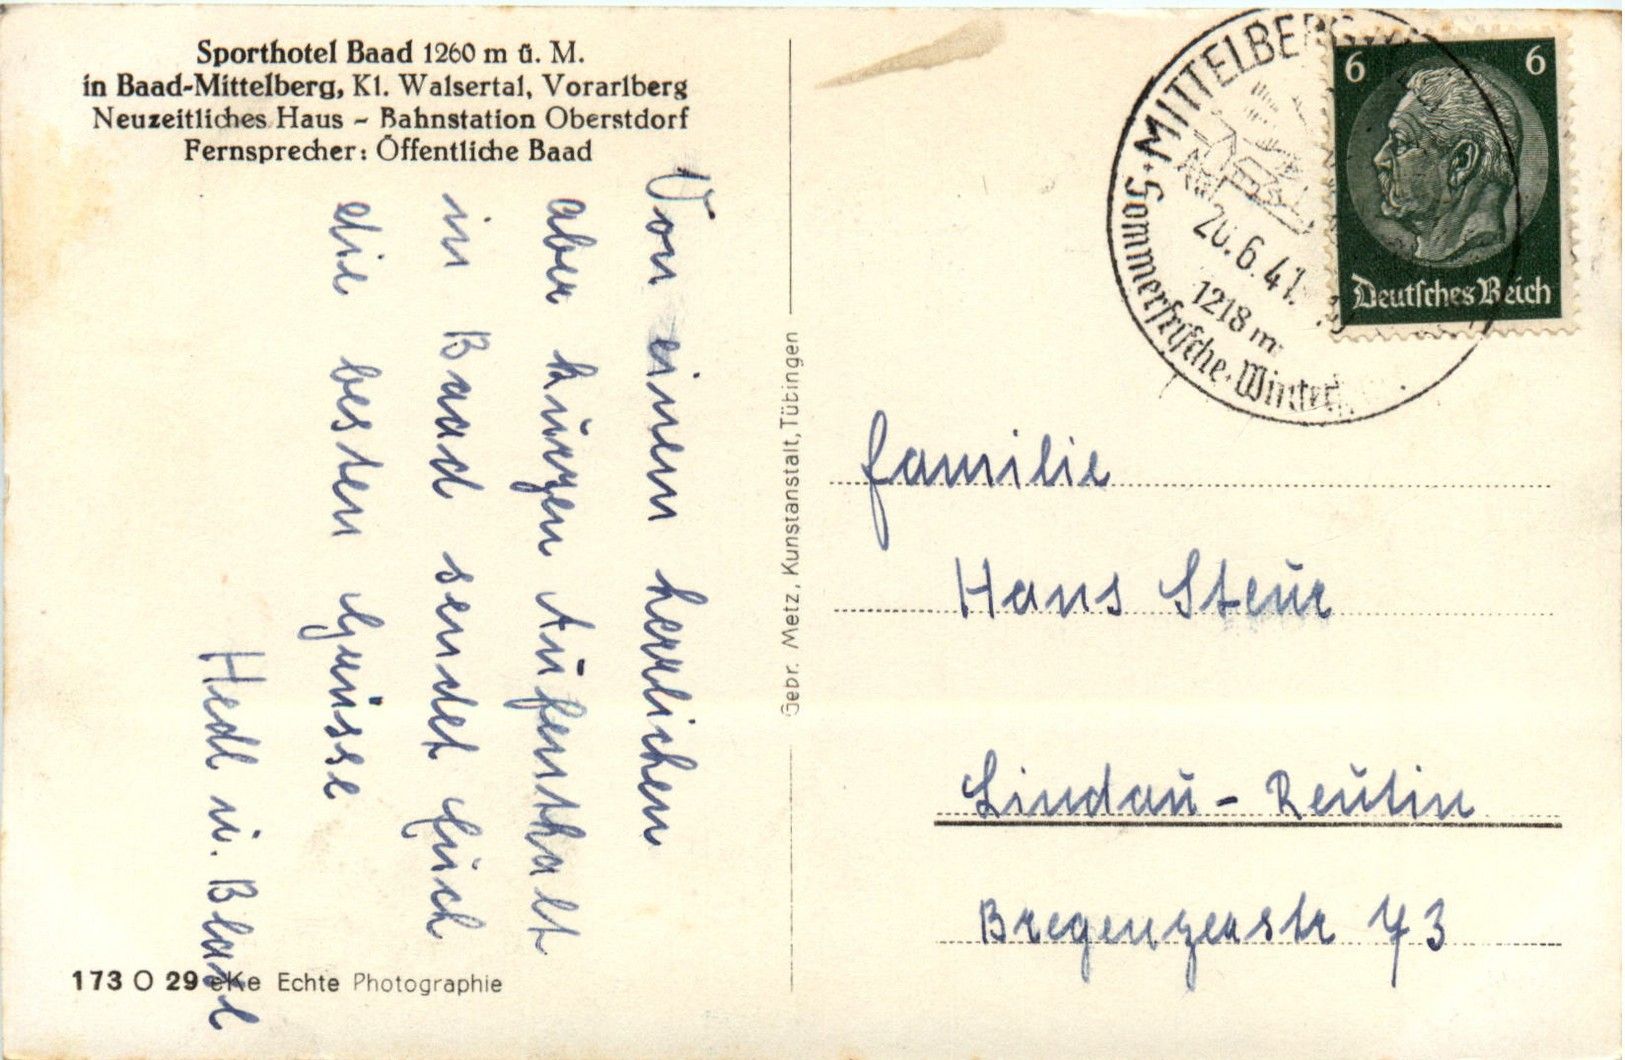 Sporthotel Baad 1260 m ü. M.
in Baad-Mittelberg, Kl. Walsertal, Vorarlberg
Neuzeitliches Haus – Bahnstation Oberstdorf
Fernsprecher: Öffentliche Baad
Von einem herrlichen
aber kurzen Aufenthalt
in Baad sendet Euch
die besten Grüsse
Hedl u. Blasl
173 O 29 eKe Echte Photographie
Gebr. Metz, Kunstanstalt, Tübingen
MITTELBERG
26.6.41.
1218 m
Sommerfrische · Winter
6 6
Deutsches Reich
Familie
Hans Steur
Lindau - Reutin
Bregenzerstr 73